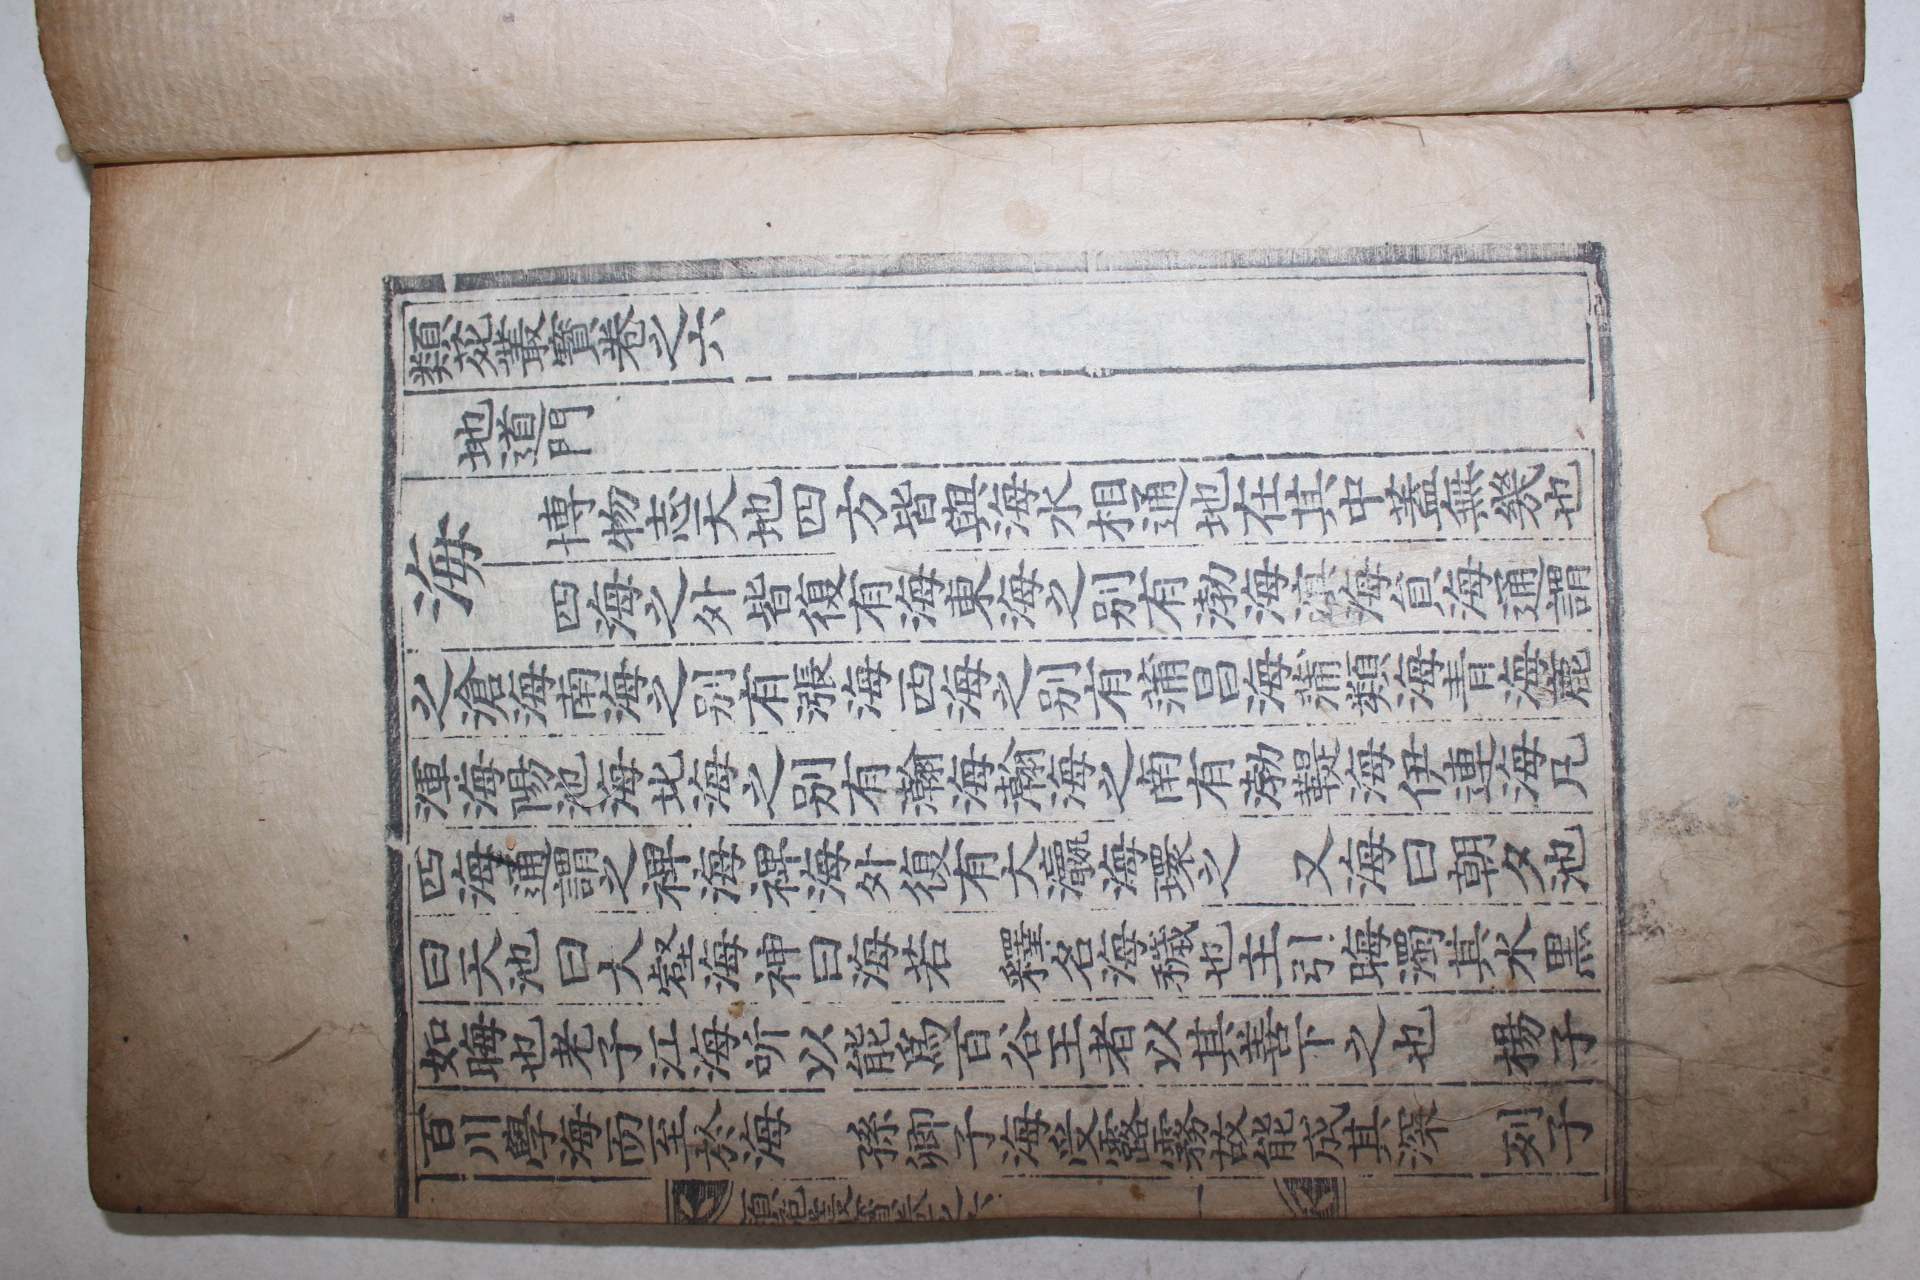 類苑叢寶卷之六
地道門
海
博物志天地四方皆與海水相通地在其中蓋無幾也
四海之外皆復有海東海之別有渤海溟海負海通謂
之滄海南海之別有漲海西海之別有蒲昌海蒲類海青海鹿
渾海陽池海北海之別有瀚海瀚海之南有渤鞮海伊連海凡
四海通謂之裨海裨海外復有大瀛海環之 又海曰朝夕池
曰天池曰大壑海神曰海若 釋名海穢也主引晦濁其水黑
如晦也老子江海所以能爲百谷王者以其善下之也 揚子
百川學海而至於海 孫卿子海受霧故能成其深 列子
類苑叢寶卷之六 一